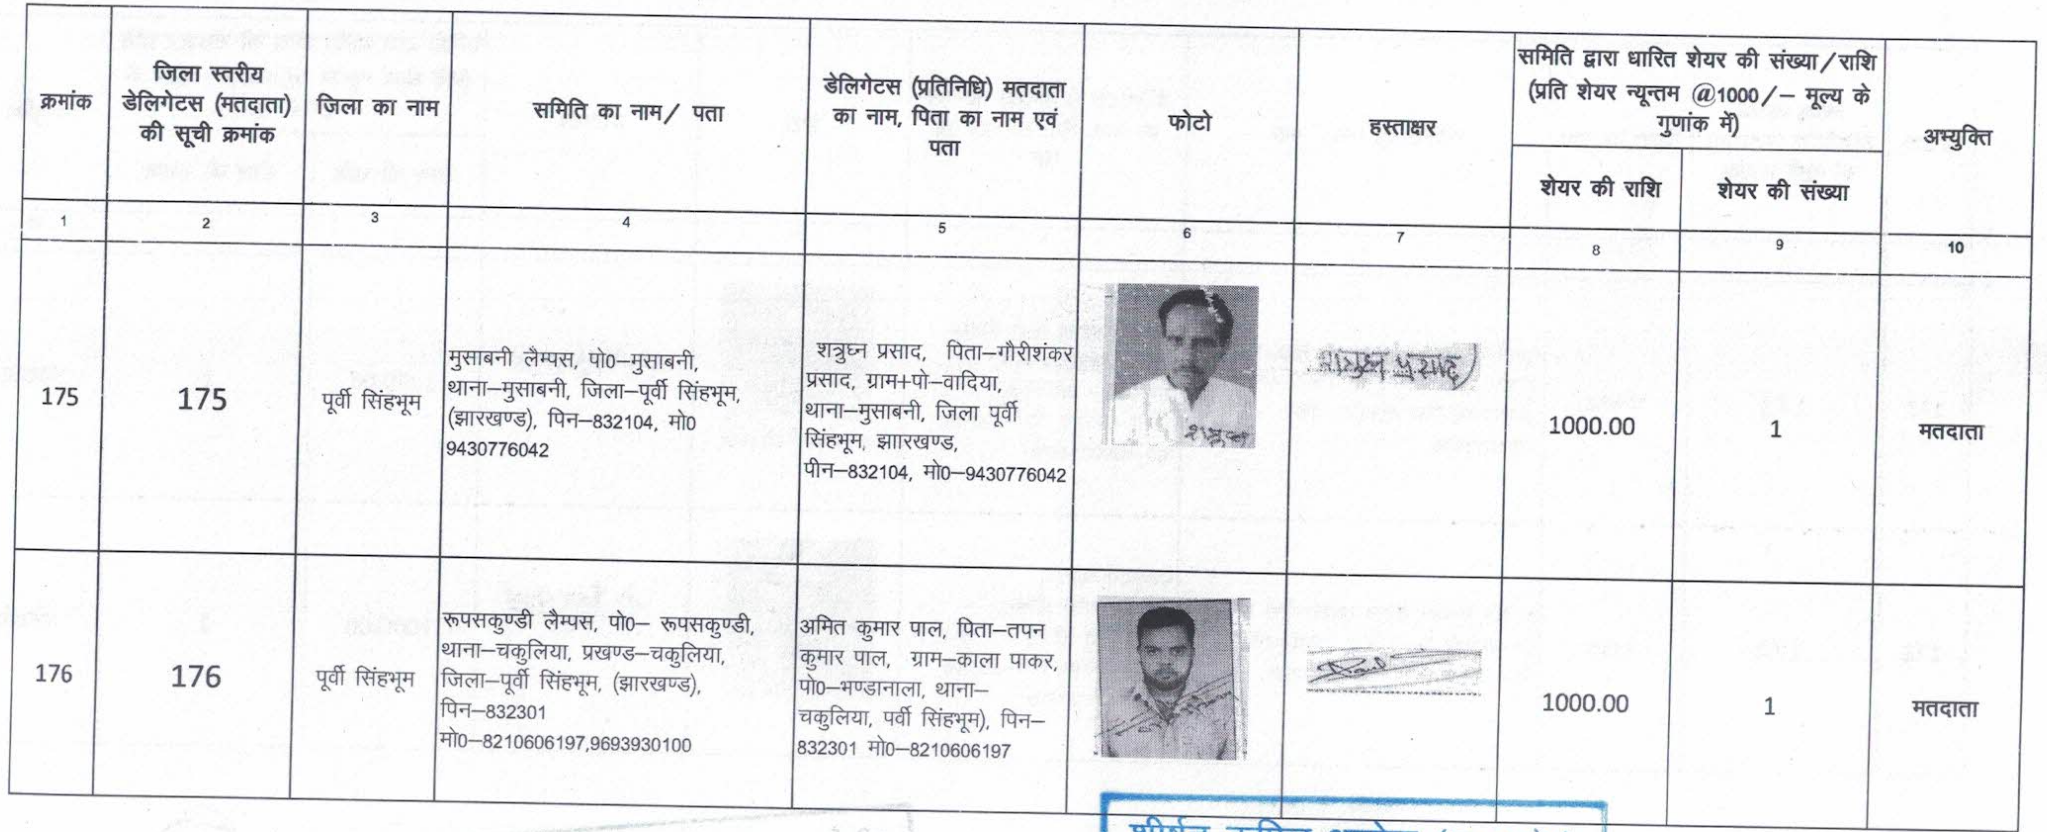 क्रमांक
जिला स्तरीय
डेलिगेटस (मतदाता)
की सूची क्रमांक
जिला का नाम
समिति का नाम/ पता
डेलिगेटस (प्रतिनिधि) मतदाता
का नाम, पिता का नाम एवं
पता
फोटो
हस्ताक्षर
समिति द्वारा धारित शेयर की संख्या/राशि
(प्रति शेयर न्यून्तम @1000/– मूल्य के
गुणांक में)
शेयर की राशि
शेयर की संख्या
अभ्युक्ति
1 2 3 4 5 6 7 8 9 10
175
175
पूर्वी सिंहभूम
मुसाबनी लैम्पस, पो0–मुसाबनी,
थाना–मुसाबनी, जिला–पूर्वी सिंहभूम,
(झारखण्ड), पिन–832104, मो0
9430776042
शत्रुघ्न प्रसाद, पिता–गौरीशंकर
प्रसाद, ग्राम+पो–वादिया,
थाना–मुसाबनी, जिला पूर्वी
सिंहभूम, झाारखण्ड,
पीन–832104, मो0–9430776042
शत्रुघ्न प्रसाद
1000.00
1
मतदाता
176
176
पूर्वी सिंहभूम
रूपसकुण्डी लैम्पस, पो0– रूपसकुण्डी,
थाना–चकुलिया, प्रखण्ड–चकुलिया,
जिला–पूर्वी सिंहभूम, (झारखण्ड),
पिन–832301
मो0–8210606197,9693930100
अमित कुमार पाल, पिता–तपन
कुमार पाल, ग्राम–काला पाकर,
पो0–भण्डानाला, थाना–
चकुलिया, पर्वी सिंहभूम), पिन–
832301 मो0–8210606197
1000.00
1
मतदाता